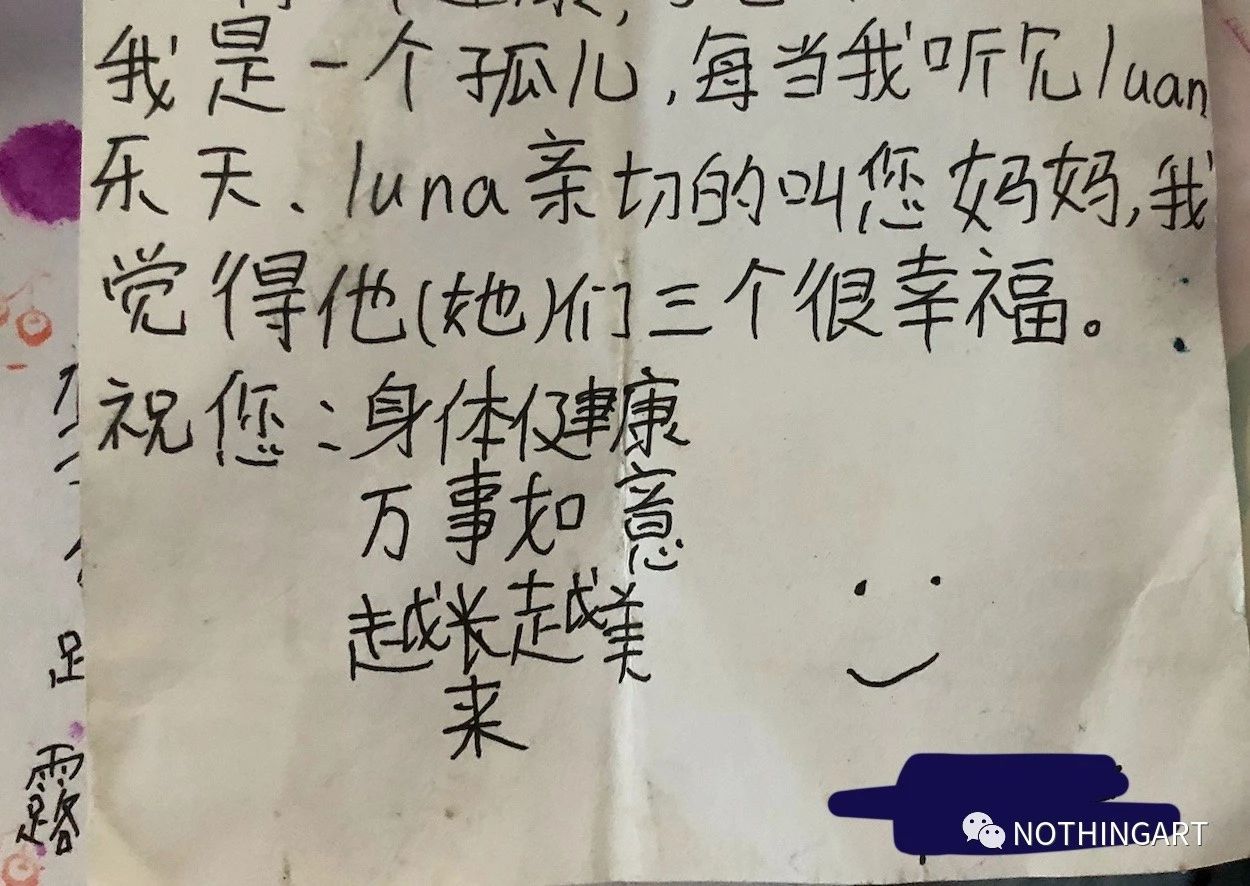 我是一个孤儿,每当我听见luan
乐天、luna亲切的叫您妈妈,我
觉得他(她)们三个很幸福。
祝您:身体健康
万事如意
越长越美
来
露
NOTHINGART